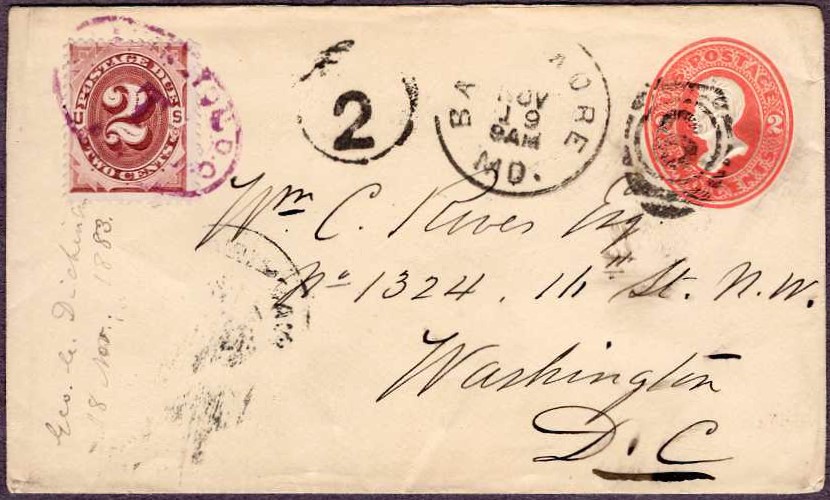 POSTAGE DUE
U 2 S
TWO CENTS
2
BA MORE
NOV
19
9AM
MD.
U.S. POSTAGE
2
Wm C. Rives Esq
No 1324 . 
St. N.W.
Washington
D. C
Geo. G.
18 Nov. 1883.